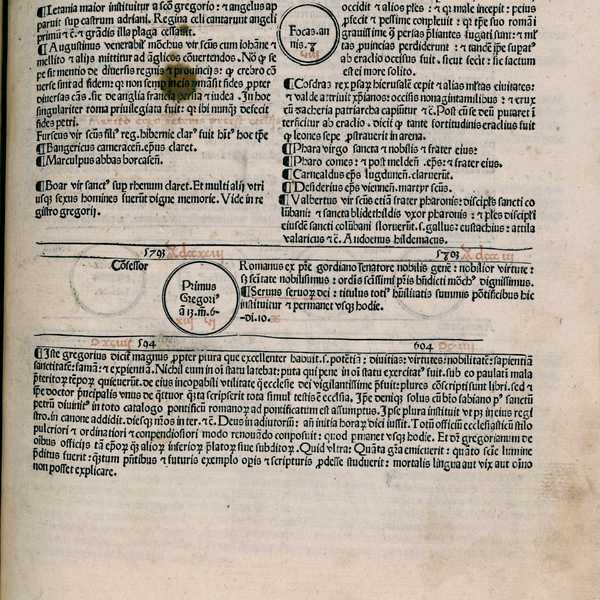 ¶Letania maior instituitur a sco gregorio: ⁊ angelus ap
paruit sup castrum adriani. Regina celi cantarunt angeli
prima ⁊ c̄. ⁊ grādis illa plaga cessauit.
¶Augustinus venerabil' mōchus vir scūs cum iohāne ⁊
mellito ⁊ alijs mittitur ad āglicos cōuertendos.
verse sunt ad fidem: q̱ non semp
diuersas cās. sic de anglia francia ⁊ iudea. Jn hoc
singulariter roma priuilegiata fuit: q̱ ibi nunq̱ defecit
fides petri.
Furseus vir scūs fili' reg. hibernie clar' fuit hīt' hoc tp̄e
¶Bangericus cameracen̄. ep̄us claret.
¶Marculpus abbas
¶Boar vir sanct' sup rhenum claret. Et multi alij vtri
usq̱ sexus homines fuerūt digne memorie. Vide in re
gistro gregorij.
Focas. an
nis. 8
occidit ⁊ alios ples: ⁊ q̱ male incepit: peius
graui'ssime ip̄e persas pliantes fugati sunt: ⁊ ml'
te puincias perdiderunt: ⁊ tandē ip̄e supat'
ab eraclio occisus fuit. sicut fecit: sic factum
est ei more solito.
¶Cosdras rex psar̄ hierusalē cepit ⁊ alias mltas ciuitates:
⁊ valde attriuit xp̄ianos: occisis nonagintamilibus: ⁊ cruc
cū zacheria patriarcha capiuntur
terficitur ab eraclio. dicit̄ q̱ tante fortitudinis eraclius fuit
q̱ leones sepe pstrauerit in arena.
¶Phara virgo sancta ⁊ nobilis ⁊ frater eius.
¶Pharo comes: ⁊ post melden̄. ep̄s: ⁊ frater eius.
¶Carnealdus ep̄s lugdunen̄. claruerūt.
¶Desiderius ep̄s viennen̄. martyr scūs.
¶Valbertus vir scūs etiā frater pharonis: discipl's sancti co
lūbani: ⁊ sancta blidethildis vxor pharonis: ⁊ ples discipl'i
eiusdē sancti colūbani floruerūt. s. gallus: eustachius: attila
valaricus ⁊ c̄. Audoenus hildemacus.
5793 5803
Cōfessor
Primus
Gregori'
a 13. m̄. 6
di. 10.
Romanus ex pr̄e gordiano senatore nobilis gene: nobilior virtute:
sz sctate nobilissimus: ordīs sctissimi pris bn̄dicti mōch' dignissimus.
¶Seruus seruor̄ dei: titulus toti' hūilitatis summis pōtificibus hic
instituitur ⁊ permanet vsq̱ hodie.
594 604
¶Jste gregorius dicit̄ magnus ppter plura que excellenter habuit. s. potētiā: diuitias: virtutes: nobilitatē: sapientiā
sanctitatē: famā: ⁊ expientiā. Nichil eum in oī statu latebat: puta qui pene in oī statu exercitat' fuit. sub eo paulati mala
pteritor̄ tēpor̄ quieuerūt. de eius incopabili vtilitate q̱ ecclesie dei vigilantissime pfuit: plures cōscripti sunt libri. sed ⁊
ip̄e doctor pncipalis vnus de q̱ttuor q̱ta scripserit tota simul testis ē ecclesia. Jp̄e deniq̱ solus cū bto fabiano p' sanctū
petrū diuinit' in toto catalogo pontificū romanor̄ ad pontificatum est assumptus. Jp̄e plura instituit vt pz in eius regi
stro. in canone addidit. diesq̱ nr̄os in ter. ⁊ c̄. Deus in adiutoriū: an initia horar̄ dici iussit. Totū officiū ecclesiasticū stilo
pulcriori ⁊ ordinatiori ⁊ compendiosiori modo renouādo composuit: quod pmanet vsq̱ hodie. Et dr̄ gregorianum de
oībus officijs tā ep̄or̄ q̱ alior̄ inferior̄ plator̄ siue subditor̄. Quid vltra: Quāta gr̄a emicuerit: quanto scie lumine
pditus fuerit: q̱tum pn̄tibus ⁊ futuris exemplo opis ⁊ scripturis pdesse studuerit: mortalis lingua aut vix aut oīno
non posset explicare.